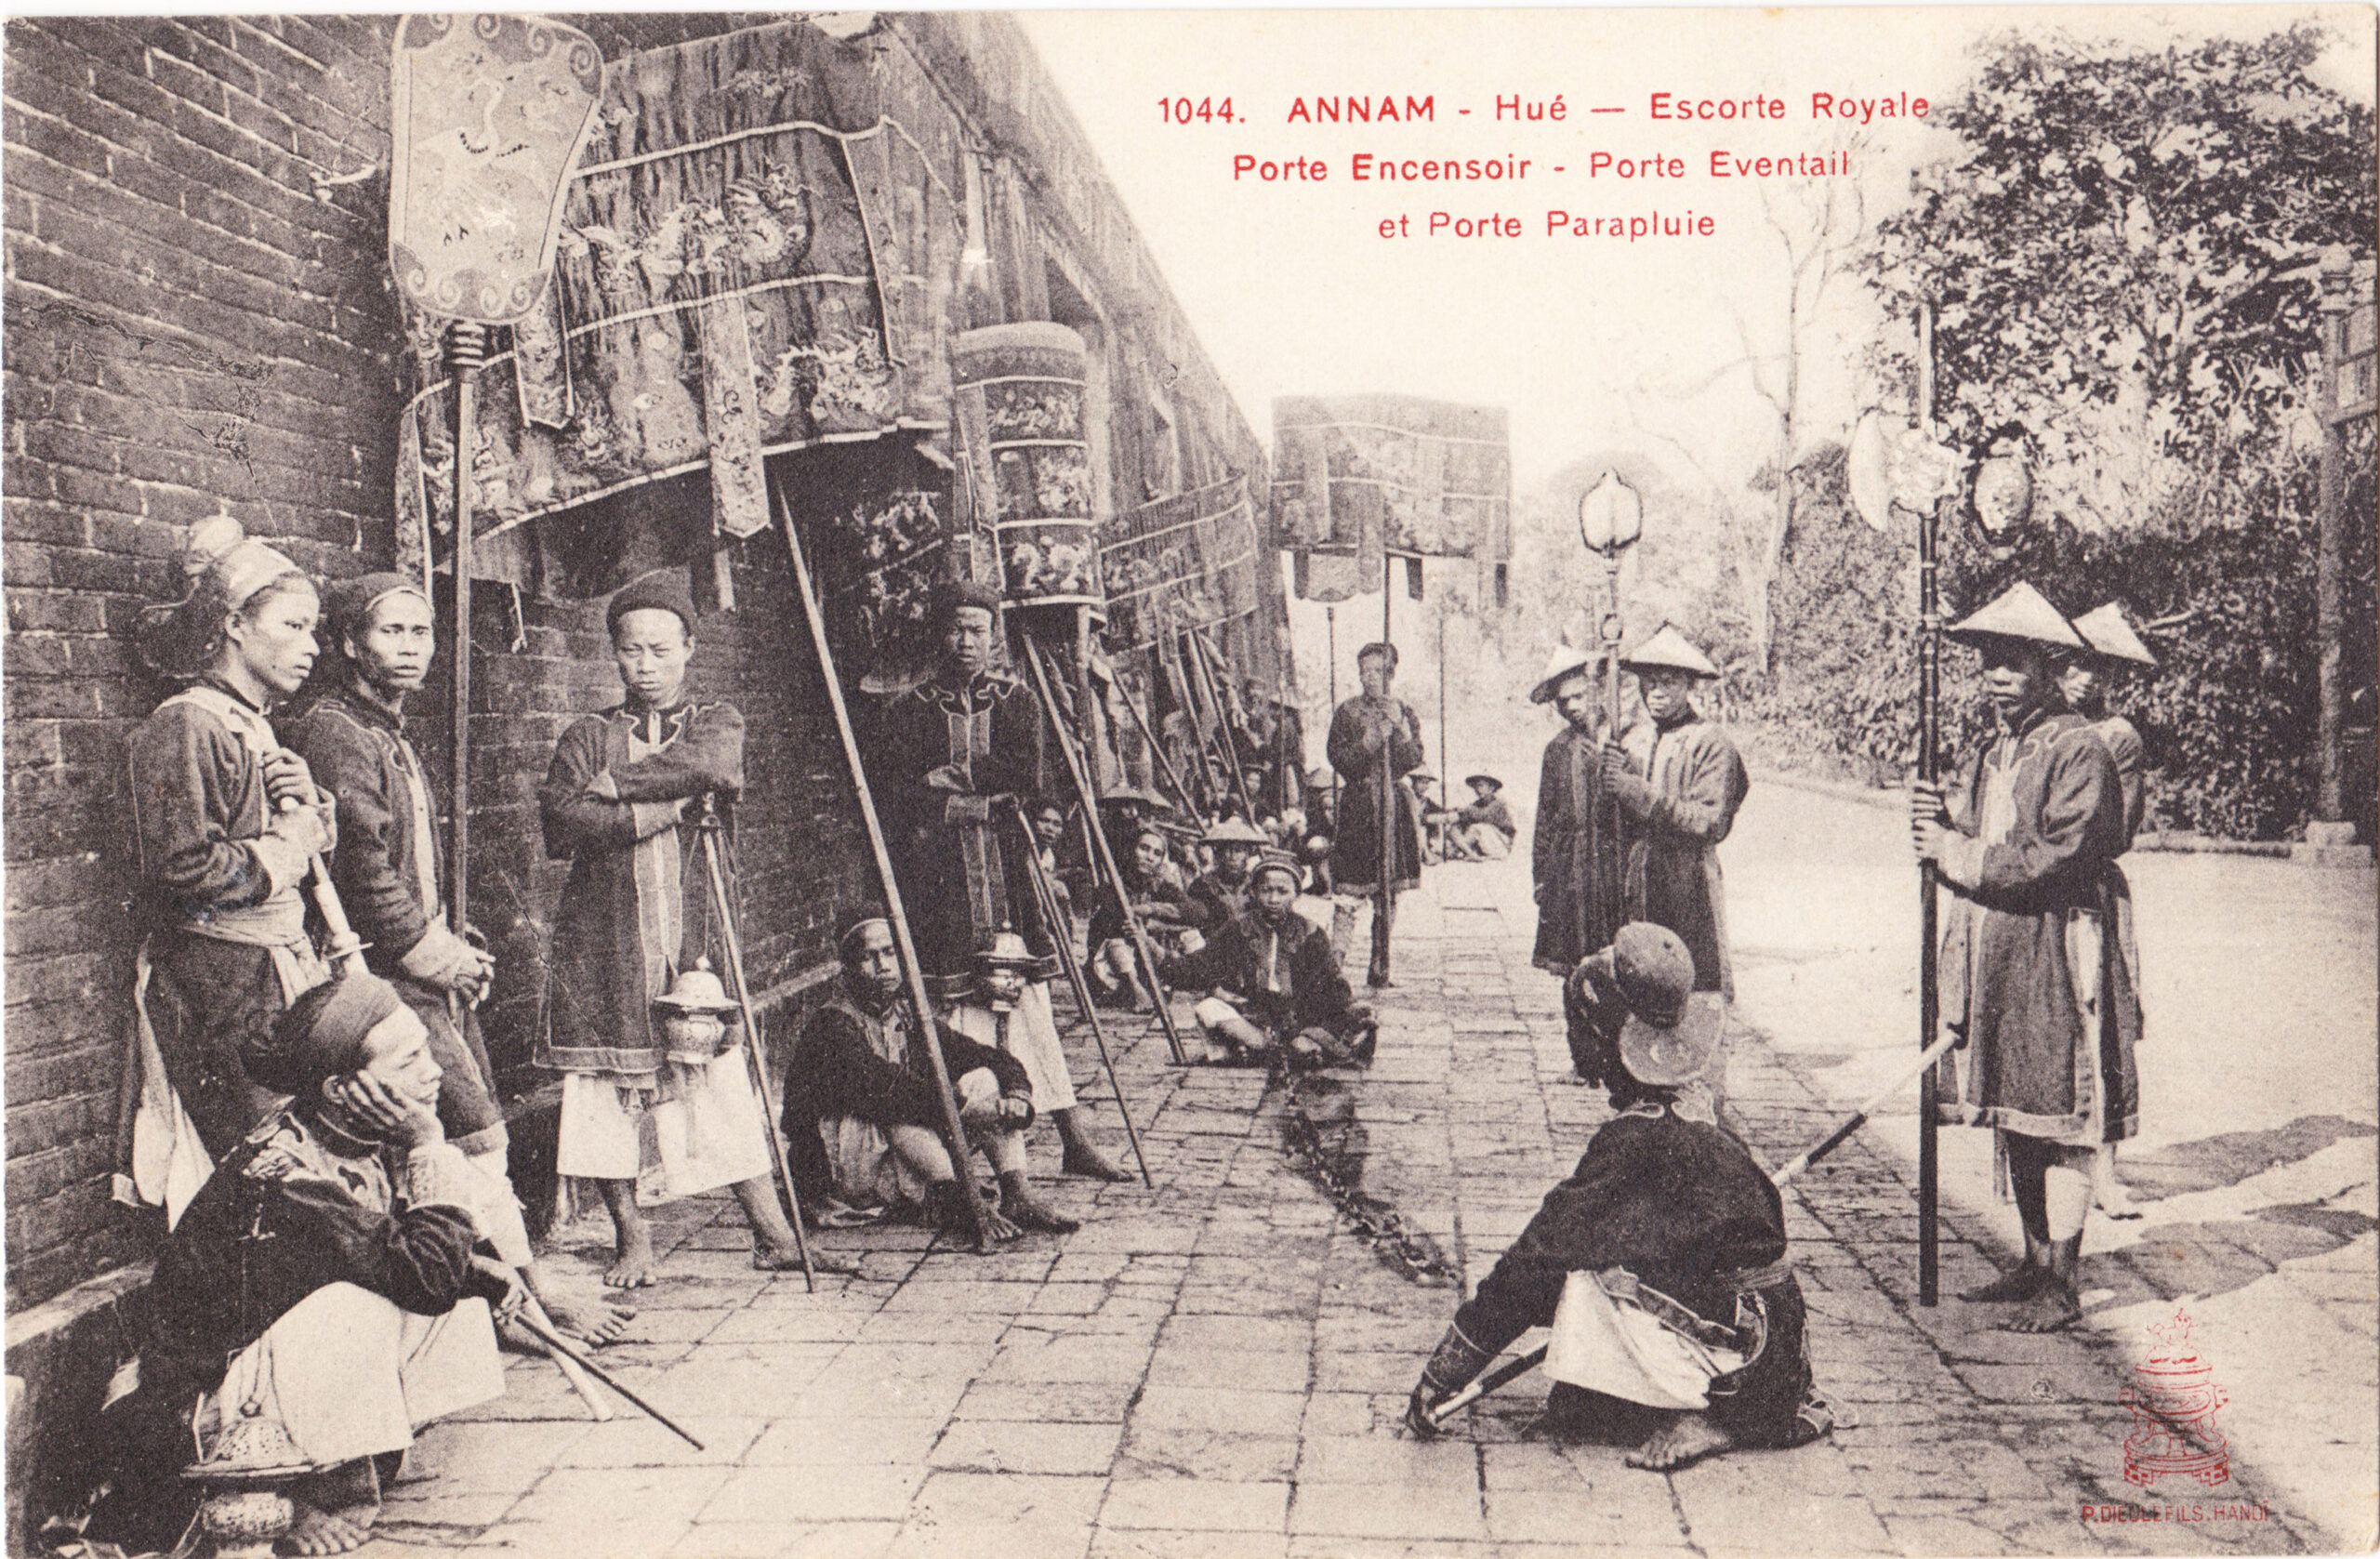 1044. ANNAM - Hué — Escorte Royale
Porte Encensoir - Porte Eventail
et Porte Parapluie
P. DIEULEFILS. HANOÏ